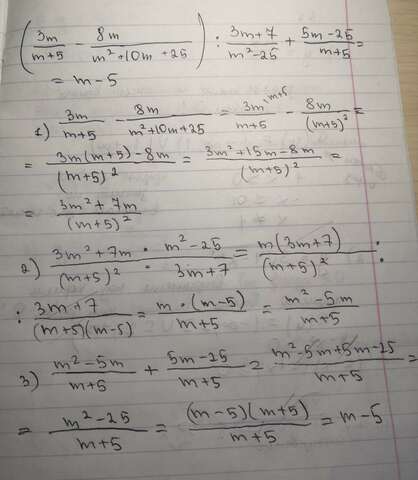 (3m/(m+5) - 8m/(m²+10m+25)) : (3m+7)/(m²-25) + (5m-25)/(m+5) =
= m-5
1) 3m/(m+5) - 8m/(m²+10m+25) = 3m^(m+5)/(m+5) - 8m/(m+5)² =
= (3m(m+5)-8m)/(m+5)² = (3m²+15m-8m)/(m+5)² =
= (3m²+7m)/(m+5)²
2) (3m²+7m)/(m+5)² · (m²-25)/(3m+7) = m(3m+7)/(m+5)² :
: (3m+7)/((m+5)(m-5)) = m·(m-5)/(m+5) = (m²-5m)/(m+5)
3) (m²-5m)/(m+5) + (5m-25)/(m+5) = (m²-5m+5m-25)/(m+5) =
= (m²-25)/(m+5) = (m-5)(m+5)/(m+5) = m-5